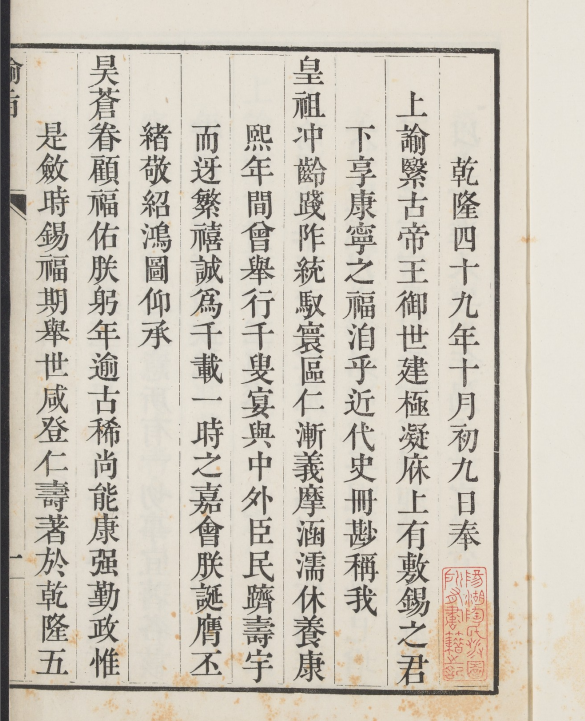 乾隆四十九年十月初九日奉
上諭繄古帝王御世建極凝庥上有敷錫之君
下享康寧之福洎乎近代史冊尠稱我
皇祖冲齡踐阼統馭寰區仁漸義摩涵濡休養康
熙年間曾舉行千叟宴與中外臣民躋壽宇
而迓繁禧誠爲千載一時之嘉會朕誕膺丕
緒敬紹鴻圖仰承
昊蒼眷顧福佑朕躬年逾古稀尚能康强勤政惟
是斂時錫福期舉世咸登仁壽著於乾隆五
一
陽湖陶氏涉園
所有書籍之記